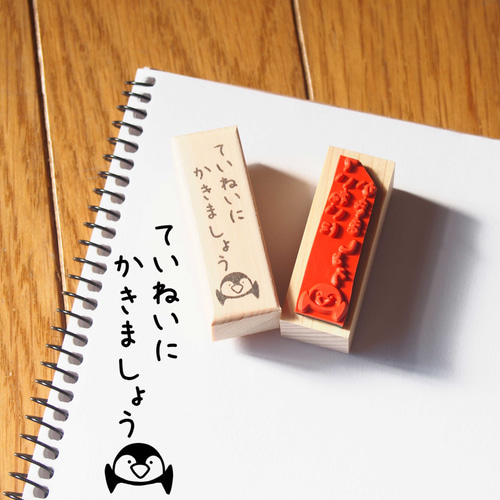 ていねいに
かきましょう
ていねいに
かきましょう